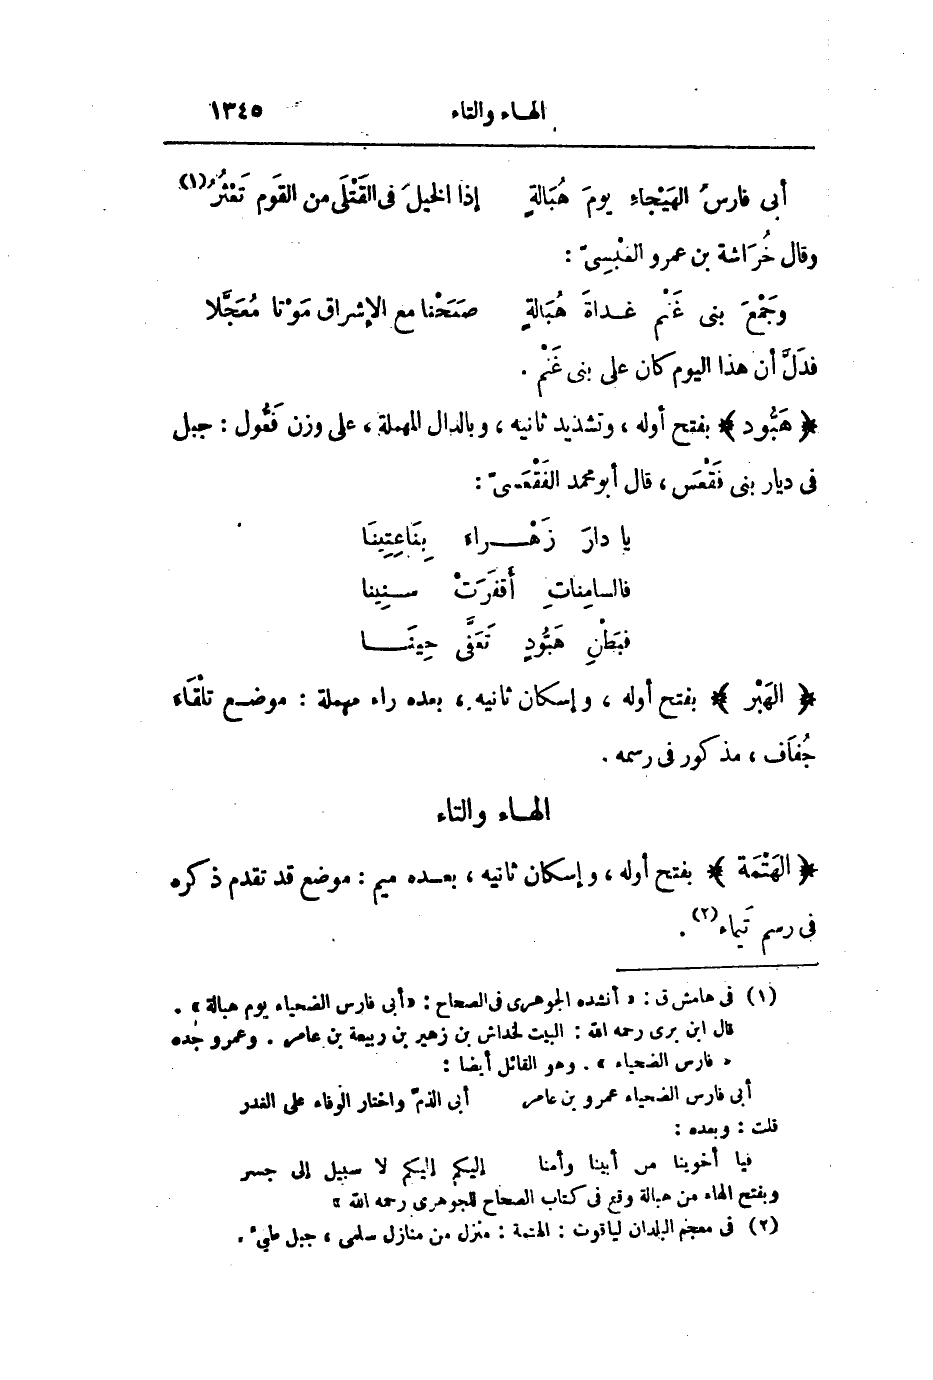 الهاء والتاء ١٣٤٥
أبى فارسُ الهَيْجاءِ يومَ هُبَالةٍ إذا الخيلَ فى القَتْلَى من القَوم تَعْثُرُ(١)
وقال خُرَاشة بن عمرو العَبْسِىّ :
وجَمْعَ بنى غَنْم غداةَ هُبَالةٍ صَبَحْنا مع الإشراق مَوْتا مُعَجَّلا
فدَلَّ أن هذا اليوم كان على بنى غَنْم .
﴿ هَبُّود ﴾ بفتح أوله ، وتشديد ثانيه ، وبالدال المهملة ، على وزن فَعُّول : جبل
فى ديار بنى فَقْعَس ، قال أبو محمد الفَقْعَسىّ :
يا دارَ زَهْراء بِنَاعِتِينَا
فالسامِناتِ أَقفَرَتْ سنِينا
فبَطْنِ هَبُّودٍ تَعَفَّى حِينَا
﴿ الهَبْر ﴾ بفتح أوله ، وإسكان ثانيه ، بعده راء مهملة : موضع تلْقَاء
جُفاَف ، مذكور فى رسمه .
الهاء والتاء
﴿ الهَتْمَة ﴾ بفتح أوله ، وإسكان ثانيه ، بعده ميم : موضع قد تقدم ذكره
فى رسم تَيماء(٢) .
(١) فى هامش ق : « أنشده الجوهرى فى الصحاح : «أبى فارس الضحياء يوم هبالة » .
قال ابن برى رحمه الله : البيت لخداش بن زهير بن ربيعة بن عامر . وعمرو جده
« فارس الضحياء » . وهو القائل أيضا :
أبى فارس الضحياء عمرو بن عامر أبى الذمّ واختار الوفاء على الغدر
قلت : وبعده :
فيا أخوينا من أبينا وأمنا إليكم إليكم لا سبيل إلى جسر
وبفتح الهاء من هبالة وقع فى كتاب الصحاح للجوهرى رحمه الله »
(٢) فى معجم البلدان لياقوت : الهتمة : منزل من منازل سلمى ، جبل طيء .